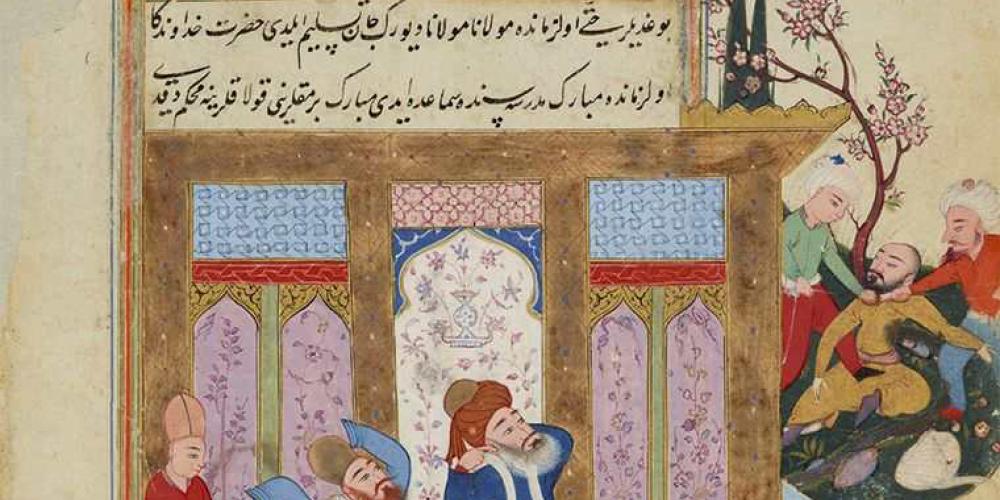 بوغدیلر حتّی اولزمانده مولانا مولانا دیورك جان تسلیم ایلدی حضرت خداوندكا
اولزمانده مبارك مدرسه سنده سماعده ایدی مبارك برمقلرینی قولاقلرینه محكم